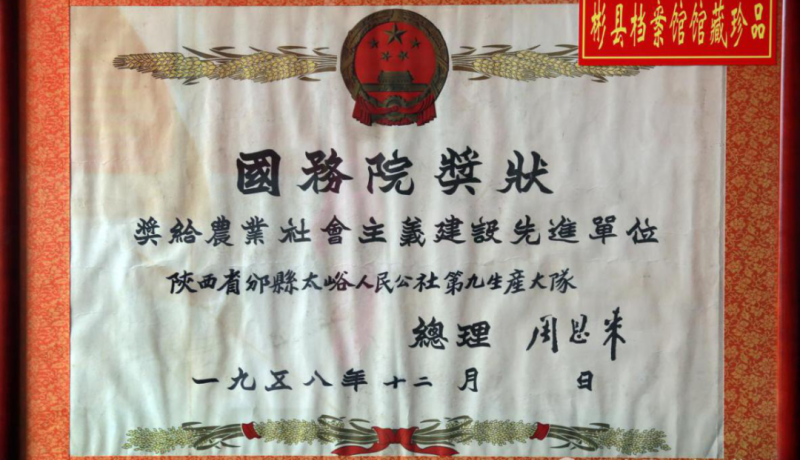 彬县档案馆馆藏珍品
國務院獎狀
獎給農業社會主義建設先進單位
陝西省邠縣太峪人民公社第九生產大隊
總理 周恩来
一九五八年十二月 日